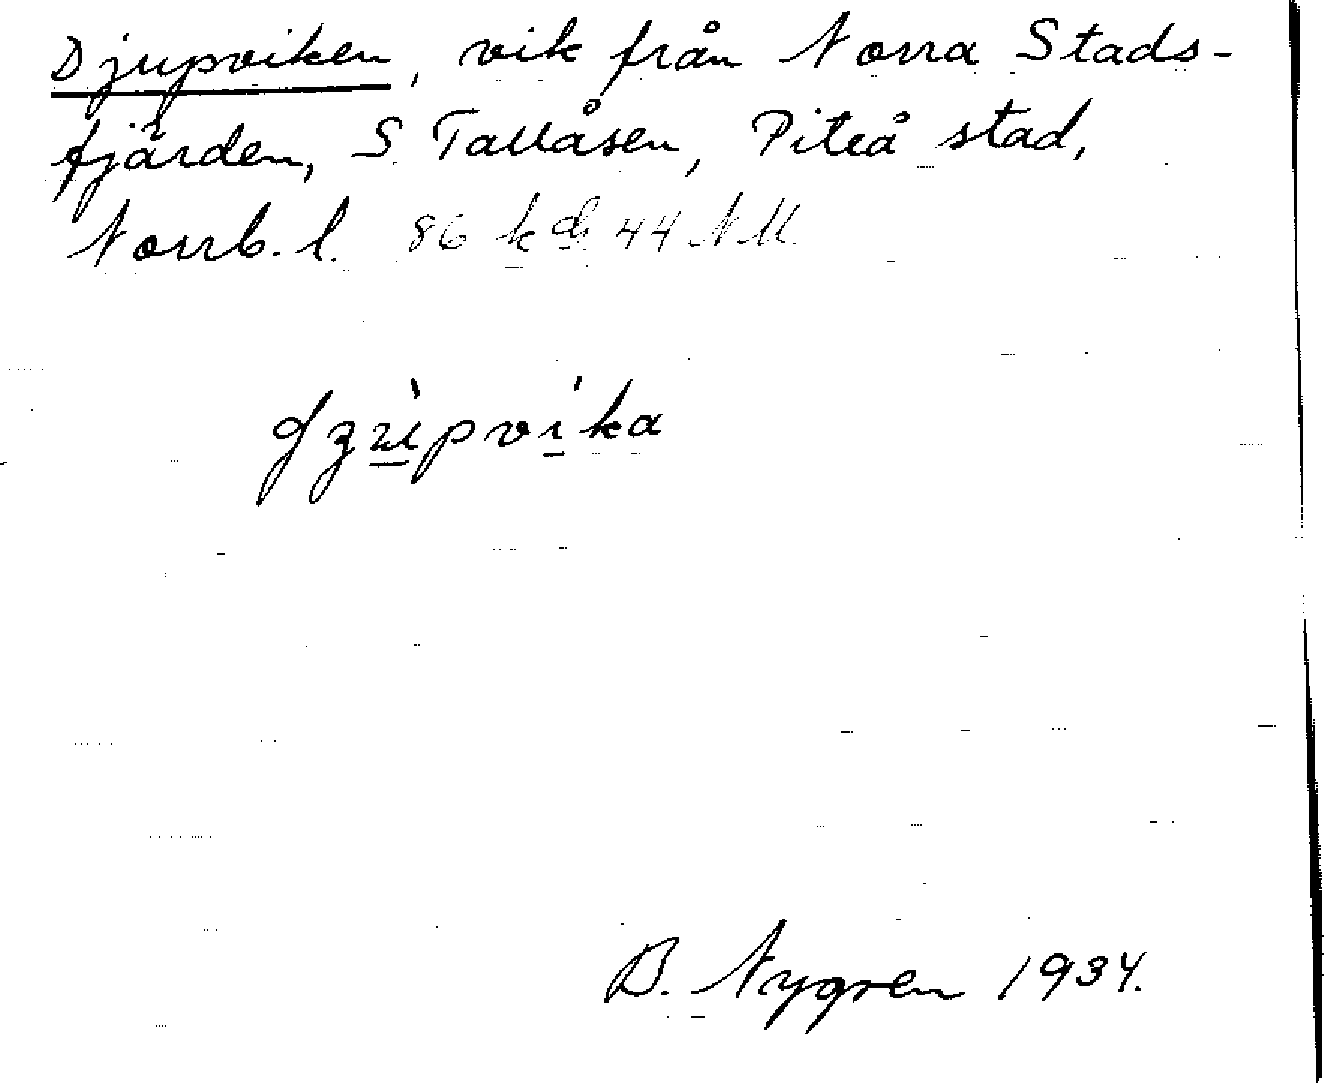 Djupviken, vik från Norra Stads-
fjärden, S Tallåsen, Piteå stad,
Norrb. l. 86 k 44 NM
B. Nygren 1934.